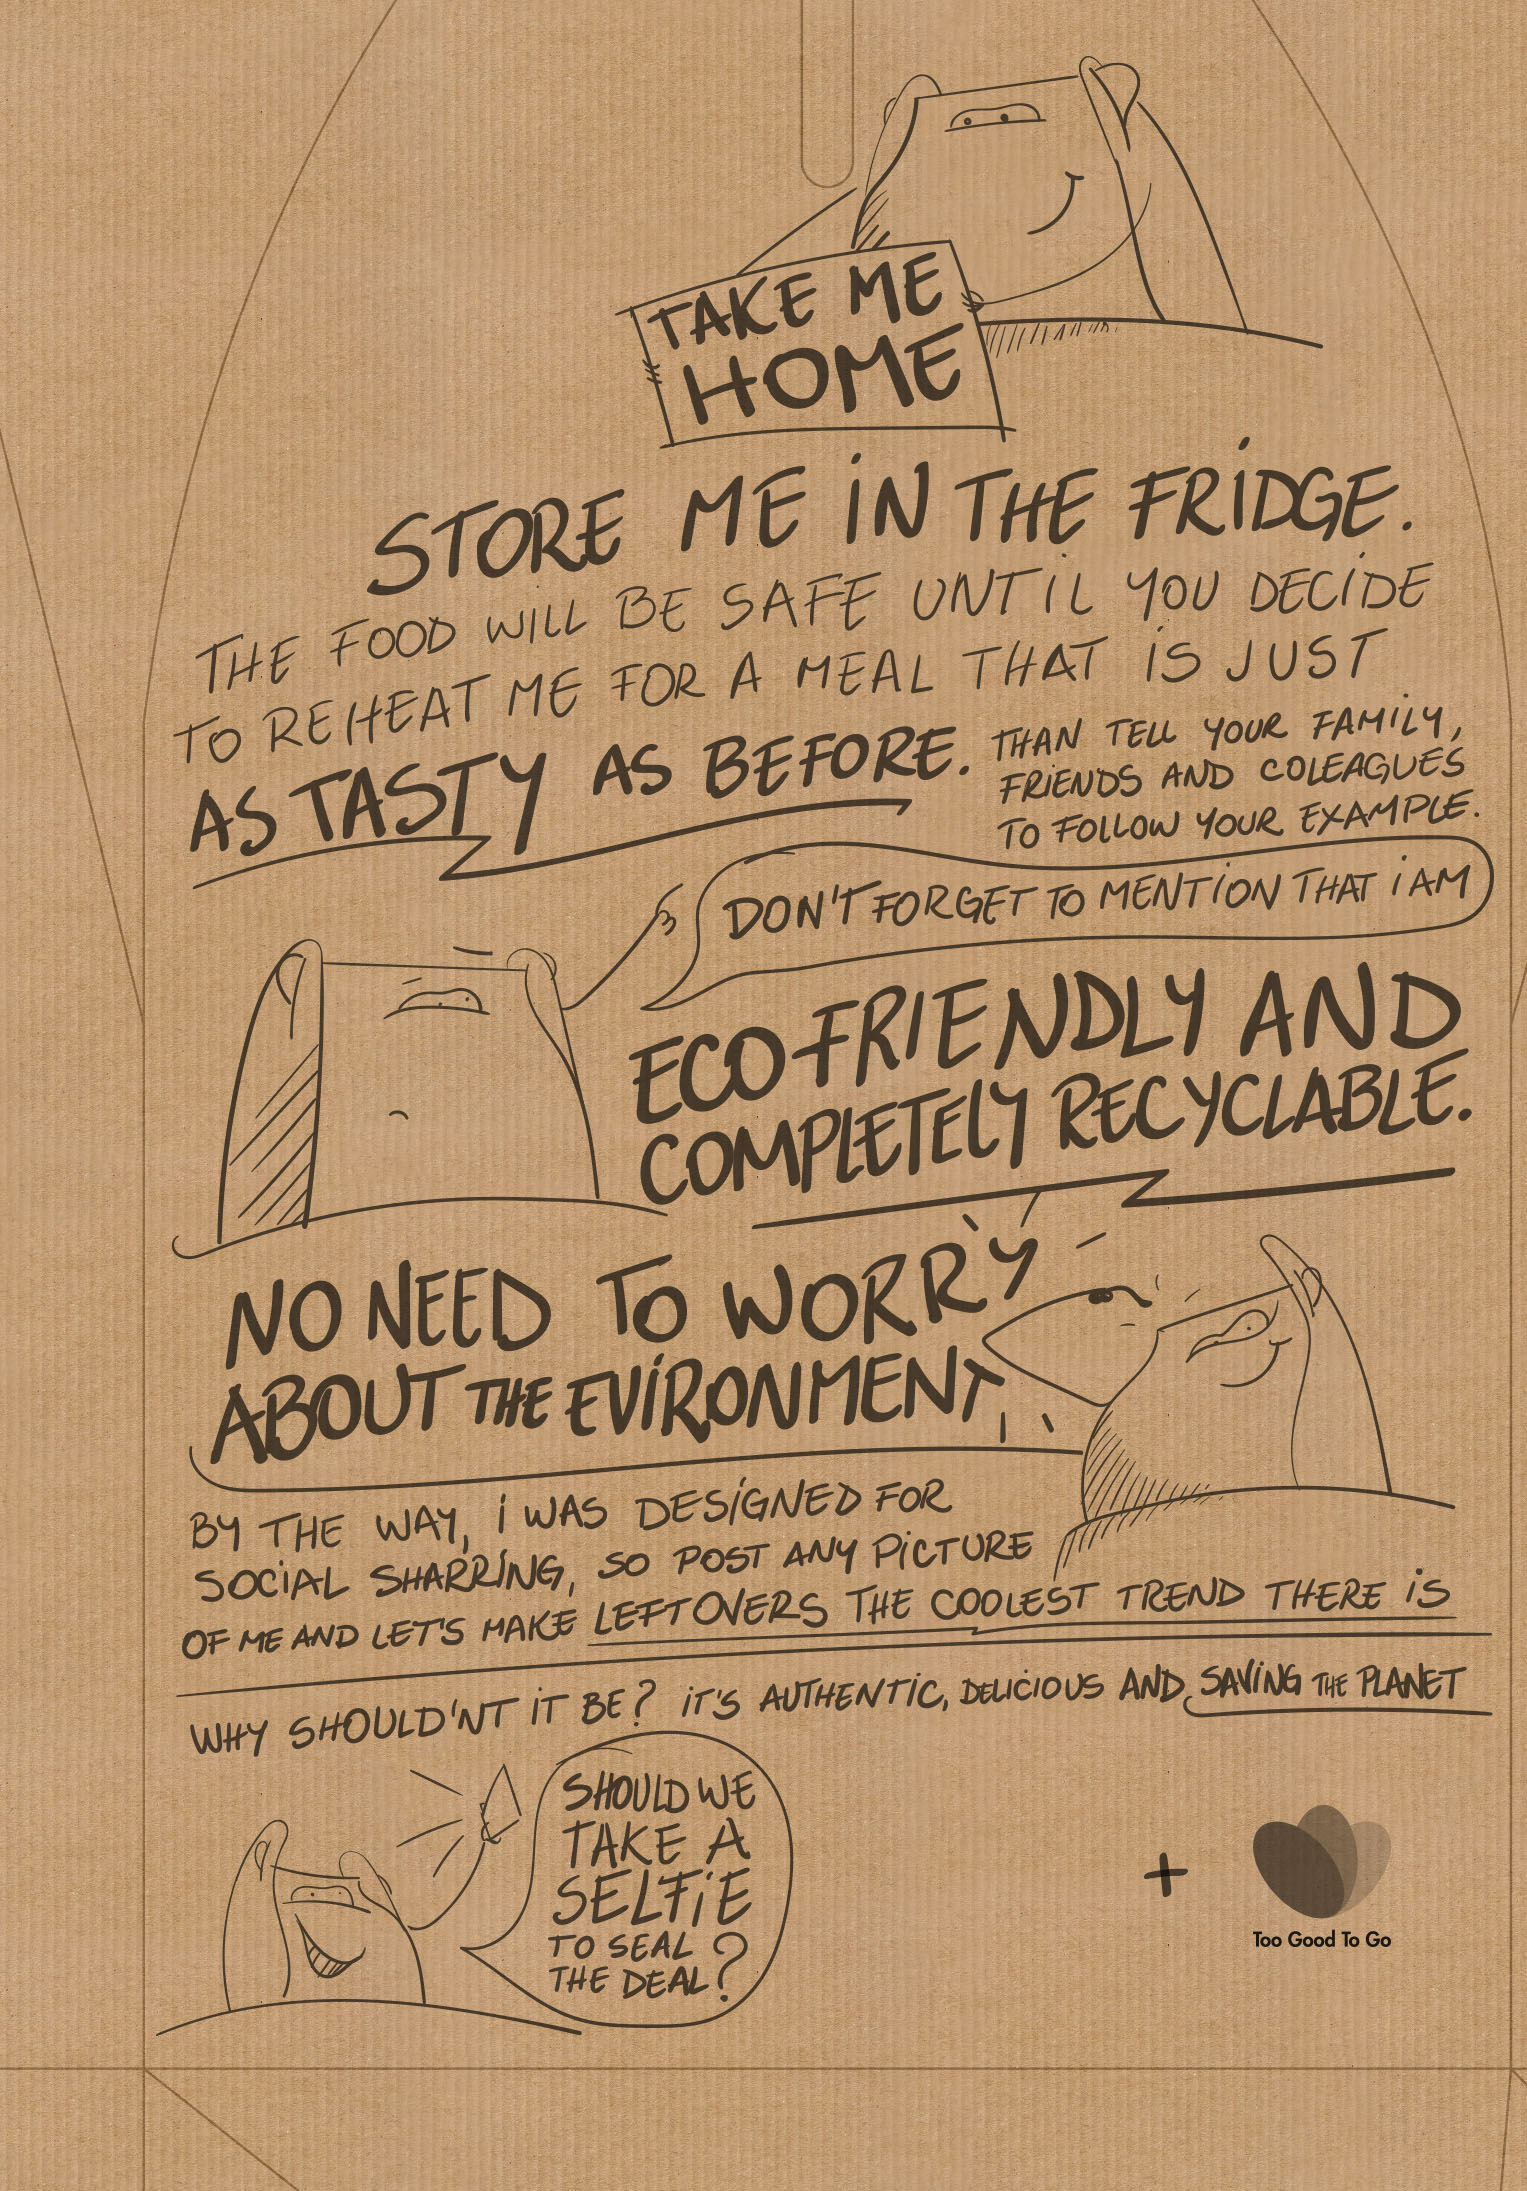 TAKE ME
HOME
STORE ME iN THE FRiDGE.
THE FOOD WILL BE SAFE UNTiL YOU DECiDE
TO REHEAT ME FOR A MEAL THAT iS JUST
AS TASTY AS BEFORE.
THAN TELL YOUR FAMiLY,
FRiENDS AND COLEAGUES
TO FOLLOW YOUR EXAMPLE.
DON'T FORGET TO MENTiON THAT i AM
ECO-FRIENDLY AND
COMPLETELY RECYCLABLE.
NO NEED TO WORRY
ABOUT THE EViRONMENT
BY THE WAY, i WAS DESiGNED FOR
SOCiAL SHARRiNG, SO POST ANY PiCTURE
OF ME AND LET'S MAKE LEFTOVERS THE COOLEST TREND THERE iS
WHY SHOULD'NT iT BE? iT'S AUTHENTiC, DELiCiOUS AND SAViNG THE PLANET
SHOULD WE
TAKE A
SELFiE
TO SEAL
THE DEAL?
+
Too Good To Go